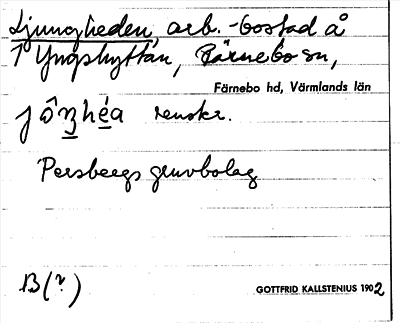 Ljungheden, arb.-bostad å
↑ Yngshyttan, Färnebo sn,
Färnebo hd, Värmlands län
jôŋhéa renskr.
Persbergs gruvbolag
B(?)
GOTTFRID KALLSTENIUS 1902